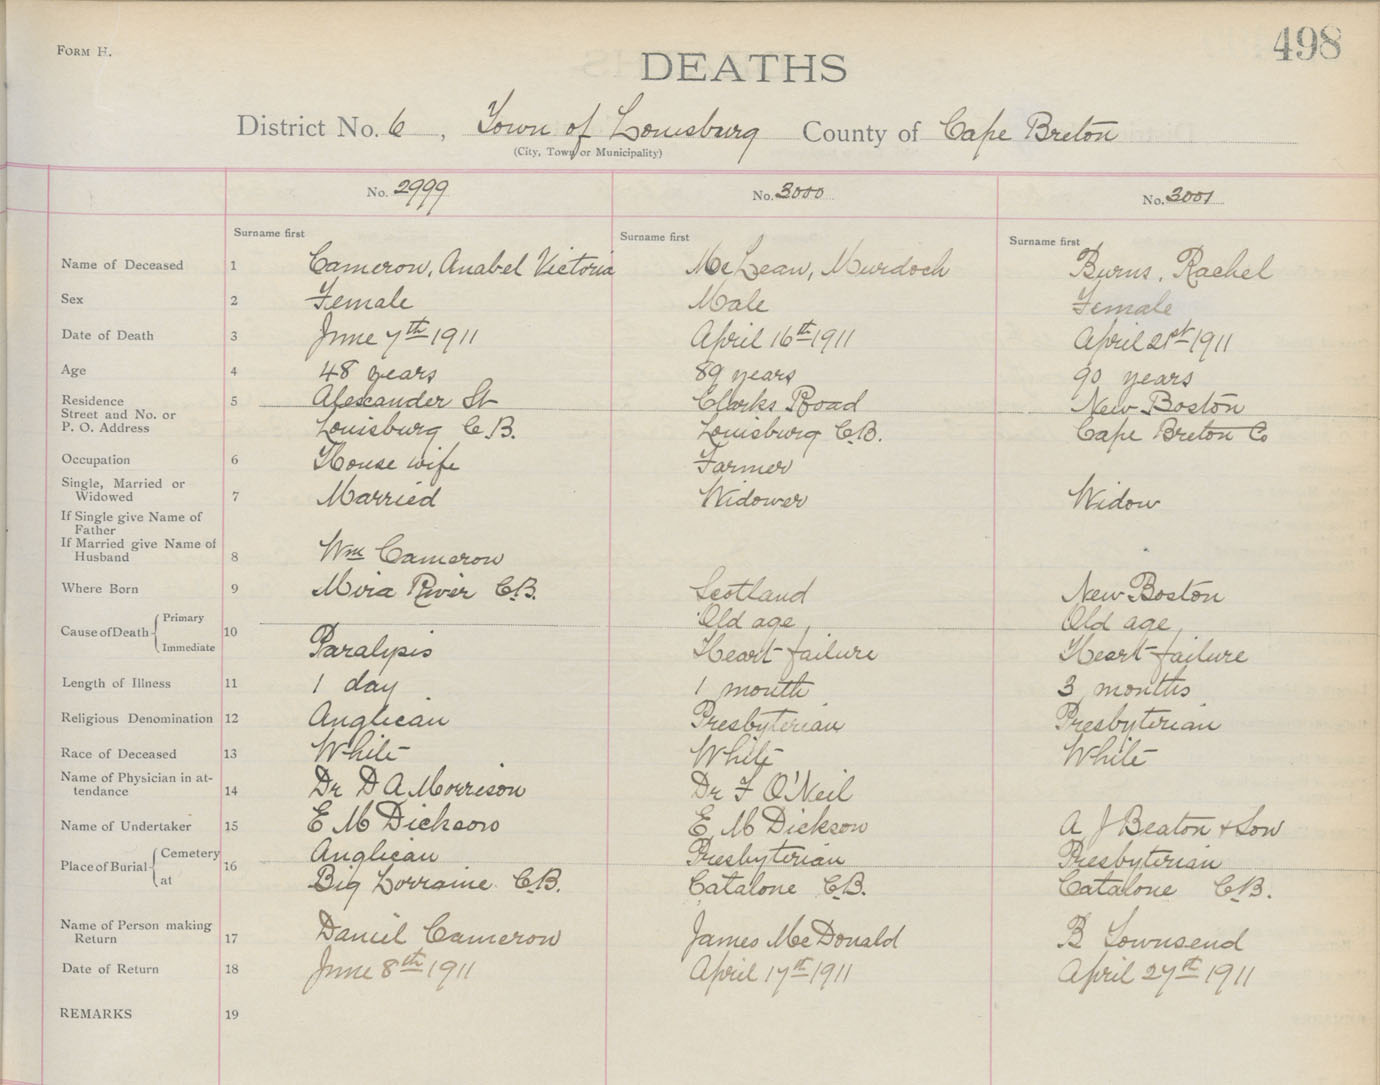 498
FORM H.
DEATHS
District No. 6, Town of Louisburg County of Cape Breton
(City, Town or Municipality)
No. 2999 No. 3000 No. 3001
Surname first Surname first Surname first
Name of Deceased 1 Cameron, Anabel Victoria McLean, Murdoch Burns, Rachel
Sex 2 Female Male Female
Date of Death 3 June 7th 1911 April 16th 1911 April 21st 1911
Age 4 48 years 89 years 90 years
Residence 5 Alexander St Clarks Road New Boston
Street and No. or
P. O. Address Louisburg C.B. Louisburg C.B. Cape Breton Co
Occupation 6 House wife Farmer
Single, Married or
Widowed 7 Married Widower Widow
If Single give Name of
Father
If Married give Name of
Husband 8 Wm Cameron
Where Born 9 Mira River C.B. Scotland New Boston
Cause of Death Primary 10 Old age Old age
Immediate Paralysis Heart failure Heart failure
Length of Illness 11 1 day 1 month 3 months
Religious Denomination 12 Anglican Presbyterian Presbyterian
Race of Deceased 13 White White White
Name of Physician in at-
tendance 14 Dr D A Morrison Dr F O'Neil
Name of Undertaker 15 E M Dickson E M Dickson A J Beaton & Son
Place of Burial Cemetery 16 Anglican Presbyterian Presbyterian
at Big Lorraine C.B. Catalone C.B. Catalone C.B.
Name of Person making
Return 17 Daniel Cameron James McDonald B Townsend
Date of Return 18 June 8th 1911 April 17th 1911 April 27th 1911
REMARKS 19